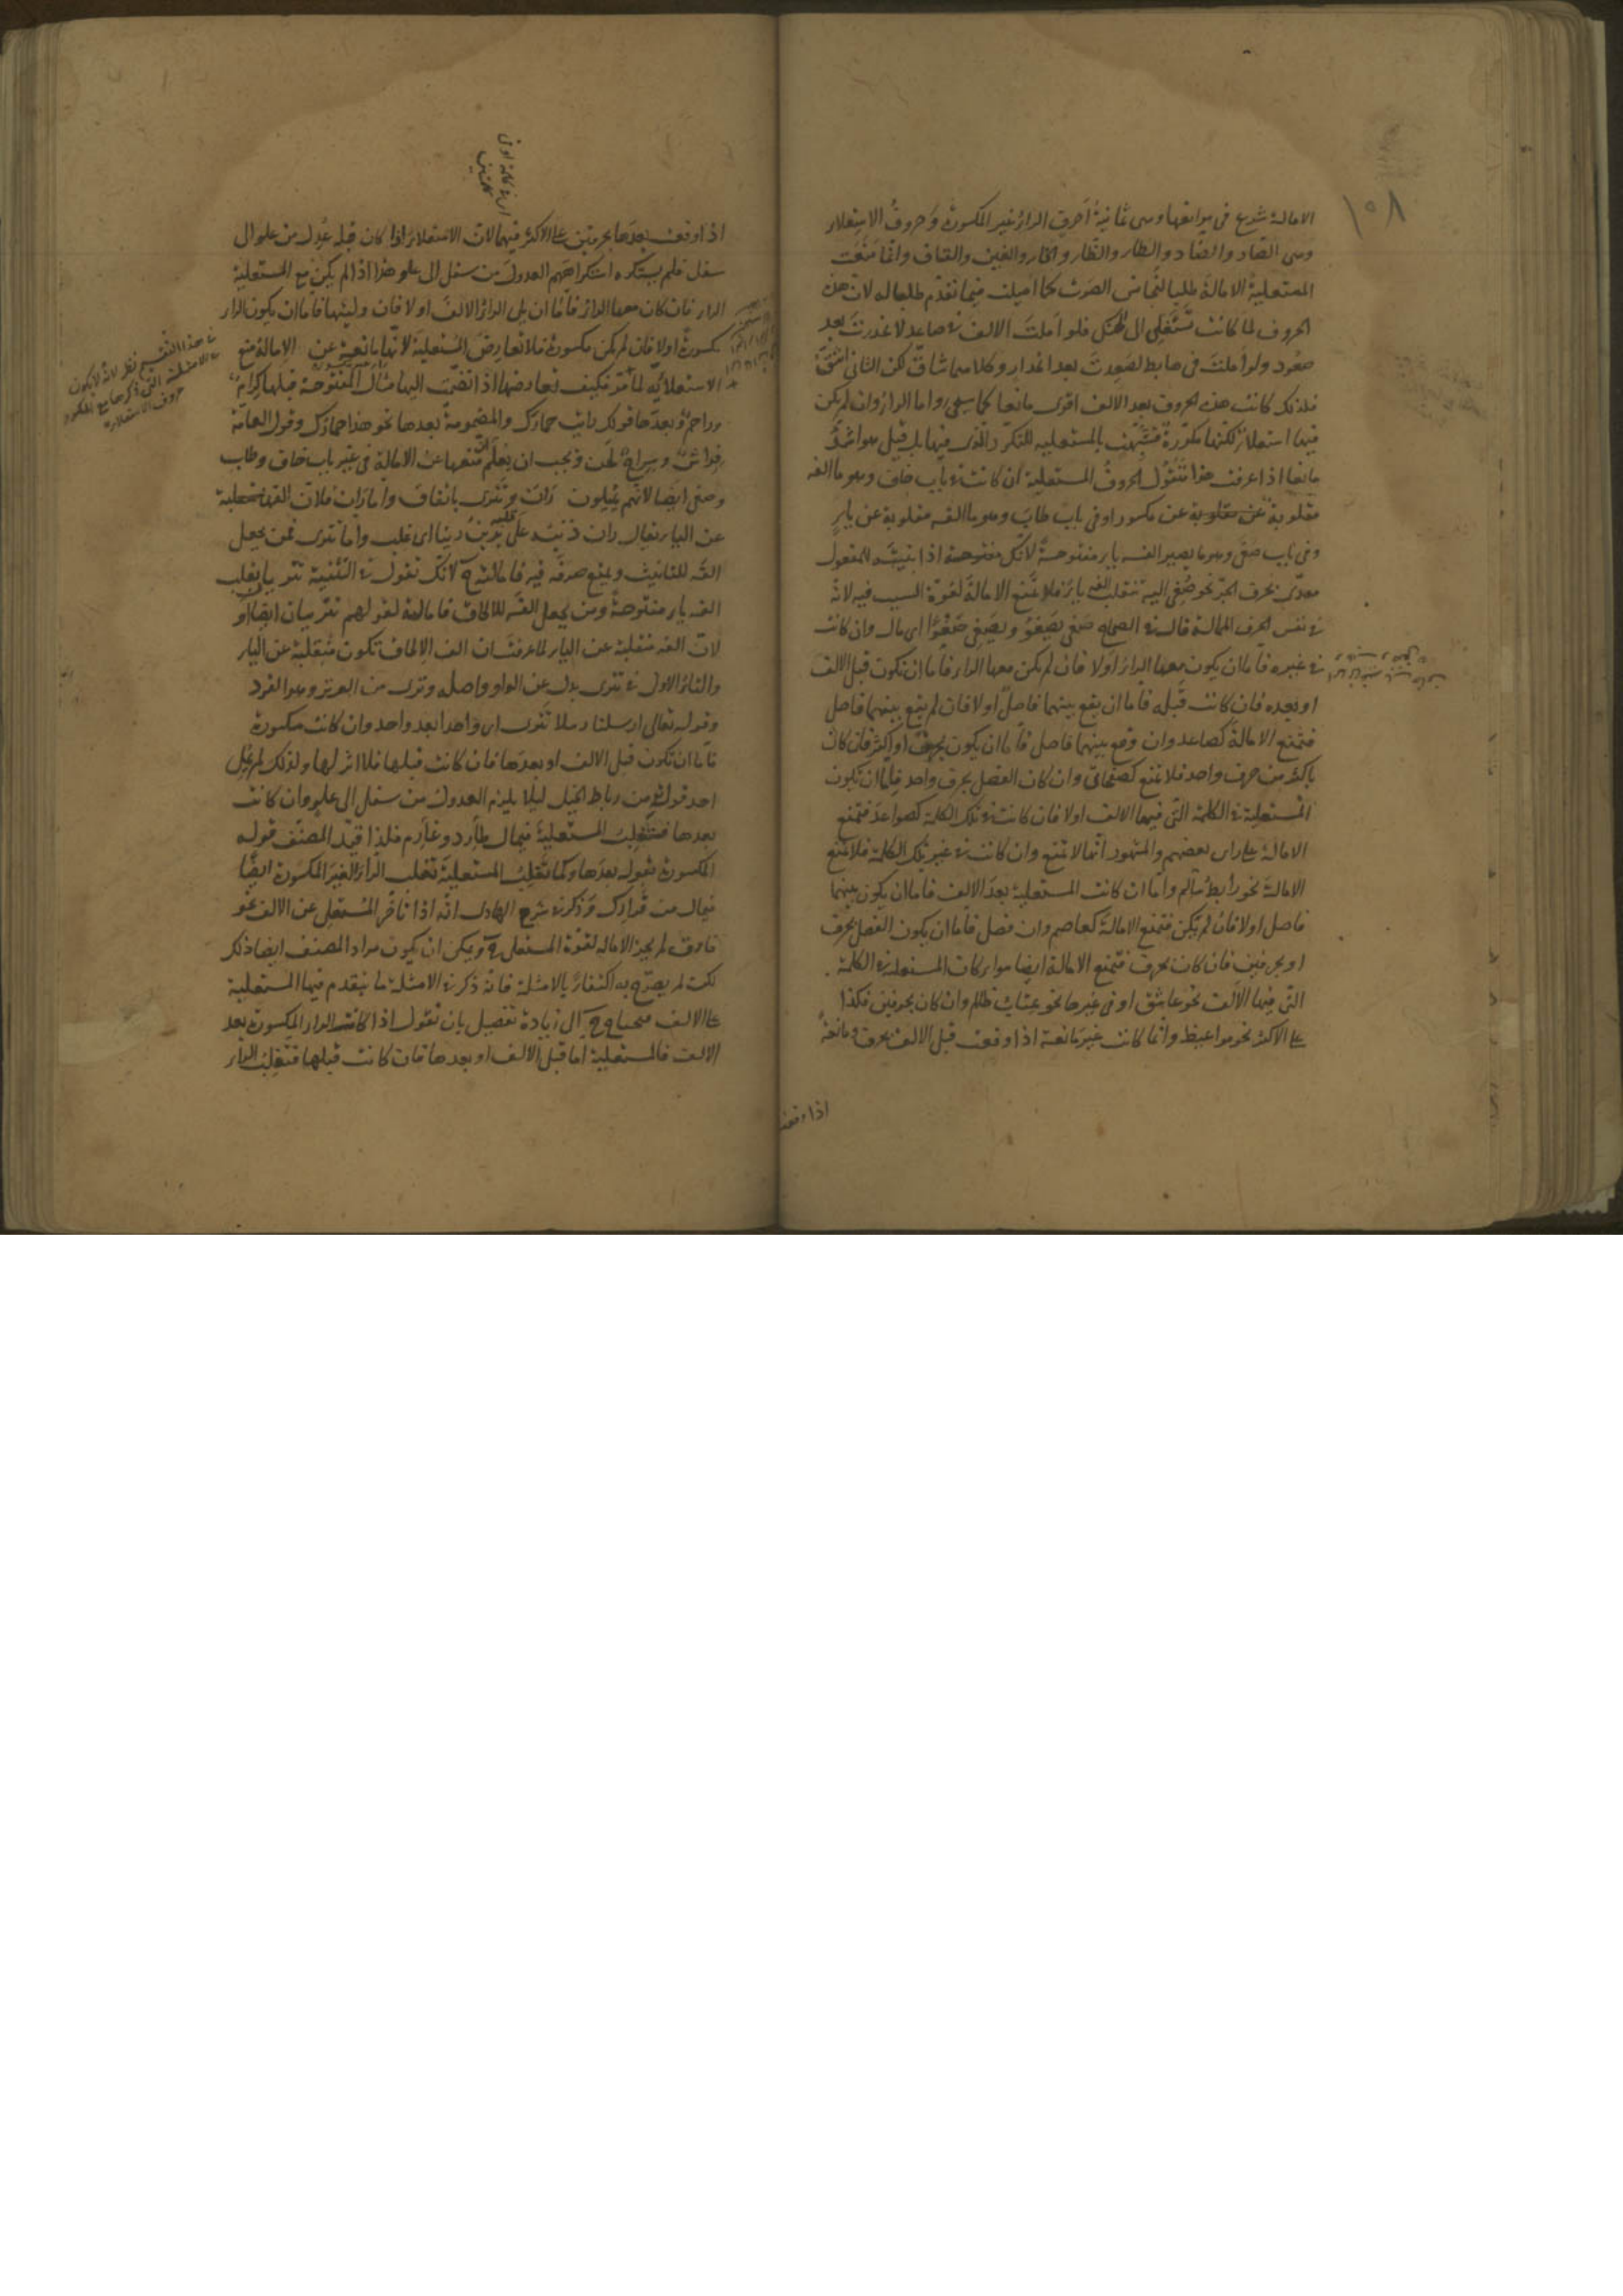 ١٥٨
الامالة شرع فى موانعها وهى ثمانية احرف الراء غير المكسورة وحروف الاستعلاء
وهى الصاد والضاد والطاء والظاء والخاء والغين والقاف وانما منعت
المستعلية الامالة طلبا لتجانس الصوت كما اميلت فيما تقدم طلبا له لان هذه
الحروف لما كانت تستعلى الى الحنك فلو املت الالف فى صاعد لانحدرت بعد
صعود ولو املت فى هابط لصعدت بعد انحدار وكلاهما شاق لكن الثانى اشق
فلذلك كانت هذه الحروف بعد الالف اقوى مانعا كما سيجئ واما الراء وان لم يكن
فيها استعلاء لكنها مكررة فشبهت بالمستعلية للتكرر الذى فيها بل قيل هو اشد
مانعا اذا عرفت هذا فنقول الحروف المستعلية ان كانت فى باب خاف وهو ما الفه
مقلوبة عن مكسور او فى باب طاب وهو ما الفه مقلوبة عن ياء
وفى باب صغى وهو ما يصير الفه ياء مفتوحة لانك اذا بنيته للمفعول
معدى بحرف الجر نحو صغى اليه تنقلب الفه ياء فلا تمنع الامالة لقوة السبب فيه لانه
فى نفس الحرف الممالة قال فى الصحاح صغى يصغو ويصغى صغوا اى مال وان كانت
فى غيره فاما ان يكون معها الراء اولا فان لم يكن معها الراء فاما ان تكون قبل الالف
او بعده فان كانت قبله فاما ان يقع بينهما فاصل اولا فان لم يقع بينهما فاصل
فتمنع الامالة كصاعد وان وقع بينهما فاصل فاما ان يكون بحرف او اكثر فان كان
باكثر من حرف واحد فلا تمنع كصفحات وان كان الفصل بحرف واحد فاما ان تكون
المستعلية فى الكلمة التى فيها الالف اولا فان كانت فى تلك الكلمة كصواعد فتمنع
الامالة على راى بعضهم والمشهور انها لا تمنع وان كانت فى غير تلك الكلمة فلا تمنع
الامالة نحو رابط سالم واما ان كانت المستعلية بعد الالف فاما ان يكون بينهما
فاصل اولا فان لم يكن فتمنع الامالة كعاصم وان فصل فاما ان يكون الفصل بحرف
او بحرفين فان كان بحرف فتمنع الامالة ايضا سواء كان المستعلية فى الكلمة
التى فيها الالف نحو عاشق او فى غيرها نحو عتاب ظالم وان كان بحرفين فكذا
على الاكثر نحو مواعيظ وانما كانت غير مانعة اذا وقعت قبل الالف بحرف ومانعة
اذا وقعت
اذا وقعت بعدها بحرفين على الاكثر فيهما لان الاستعلاء اذا كان قبله عدل من علو الى
سفل فلم يستكره استكراههم العدول من سفل الى علو هذا اذا لم يكن مع المستعلية
الراء فان كان معها الراء فاما ان يلى الراء الالف اولا فان وليتها فاما ان يكون الراء
مكسورة اولا فان لم يكن مكسورة فلا تعارض المستعلية لانها مانعة عن الامالة منع
الاستعلائية لما مر فكيف تعارضها اذا انضمت اليها مثال المفتوحة قبلها كرام
وراحم وبعدها قولك رايت حمارك والمضمومة بعدها نحو هذا حمارك وقول العامة
فراش وسراج لحن ويجب ان يعلم ان منعها عن الامالة فى غير باب خاف وطاب
وصغى ايضا لانهم يميلون ران وتترى باتفاق واما ران فلان الفها منقلبة
عن الياء يقال ران ذنبه على قلبه يرين رينا اى غلب واما تترى فمن يجعل
الفه للتانيث ويمنع صرفه فيه فامالته ح لانك تقول فى التثنية تتريا بقلب
الفه ياء مفتوحة ومن يجعل الفه للالحاق فامالته لقولهم تتريان ايضا او
لان الفه منقلبة عن الياء لما عرفت ان الف الالحاق تكون منقلبة عن الياء
والتاء الاول فى تترى بدل عن الواو واصله وترى من الوتر وهو الفرد
وقوله تعالى ارسلنا رسلنا تترى اى واحدا بعد واحد وان كانت مكسورة
فاما ان تكون قبل الالف او بعدها فان كانت قبلها فلا اثر لها ولذلك لم يمل
احد قوله من رباط الخيل ليلا يلزم العدول من سفل الى علو وان كانت
بعدها فتغلب المستعلية فيمال طارد وغارم فلذا قيد المصنف قوله
المكسورة بقوله بعدها وكما تغلب المستعلية تغلب الراء الغير المكسورة ايضا
فيمال من قرارك وذكر فى شرح الهادى انه اذا تاخر المستعلى عن الالف نحو
فارق لم يجز الامالة لقوة المستعلى ح ويمكن ان يكون مراد المصنف ايضا ذلك
لكن لم يصرح به اكتفاء بالامثلة فانه ذكر فى الامثلة ما يتقدم فيها المستعلية
على الالف فيحتاج ح الى زيادة تفصيل بان نقول اذا كانت الراء المكسورة بعد
الالف فالمستعلية اما قبل الالف او بعدها فان كانت قبلها فتغلب الراء
اى فى كلمة او فى
كلمتين
فى هذا التقسيم نظر لانه لا يكون
فى الامثلة التى ذكرها مع المكسور
حروف الاستعلاء